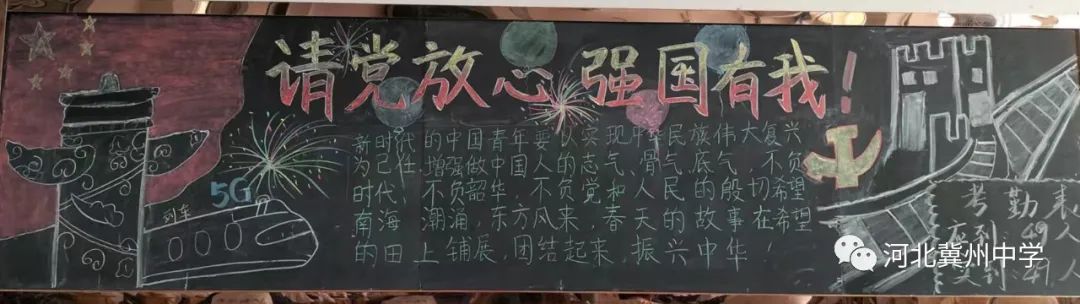 请党放心 强国有我！
新时代的中国青年要以实现中华民族伟大复兴
为己任,增强做中国人的志气、骨气、底气,不负
时代、不负韶华,不负党和人民的殷切希望
南海潮涌,东方风来,春天的故事在希望
的田上铺展,团结起来,振兴中华!
5G
列车
考勤表
应到:49人
实到:49人
河北冀州中学